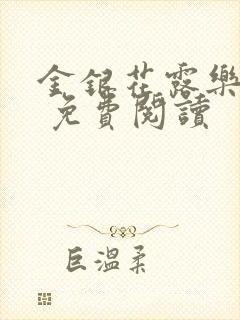 金銀花露樂
免費閱讀
巨溫柔